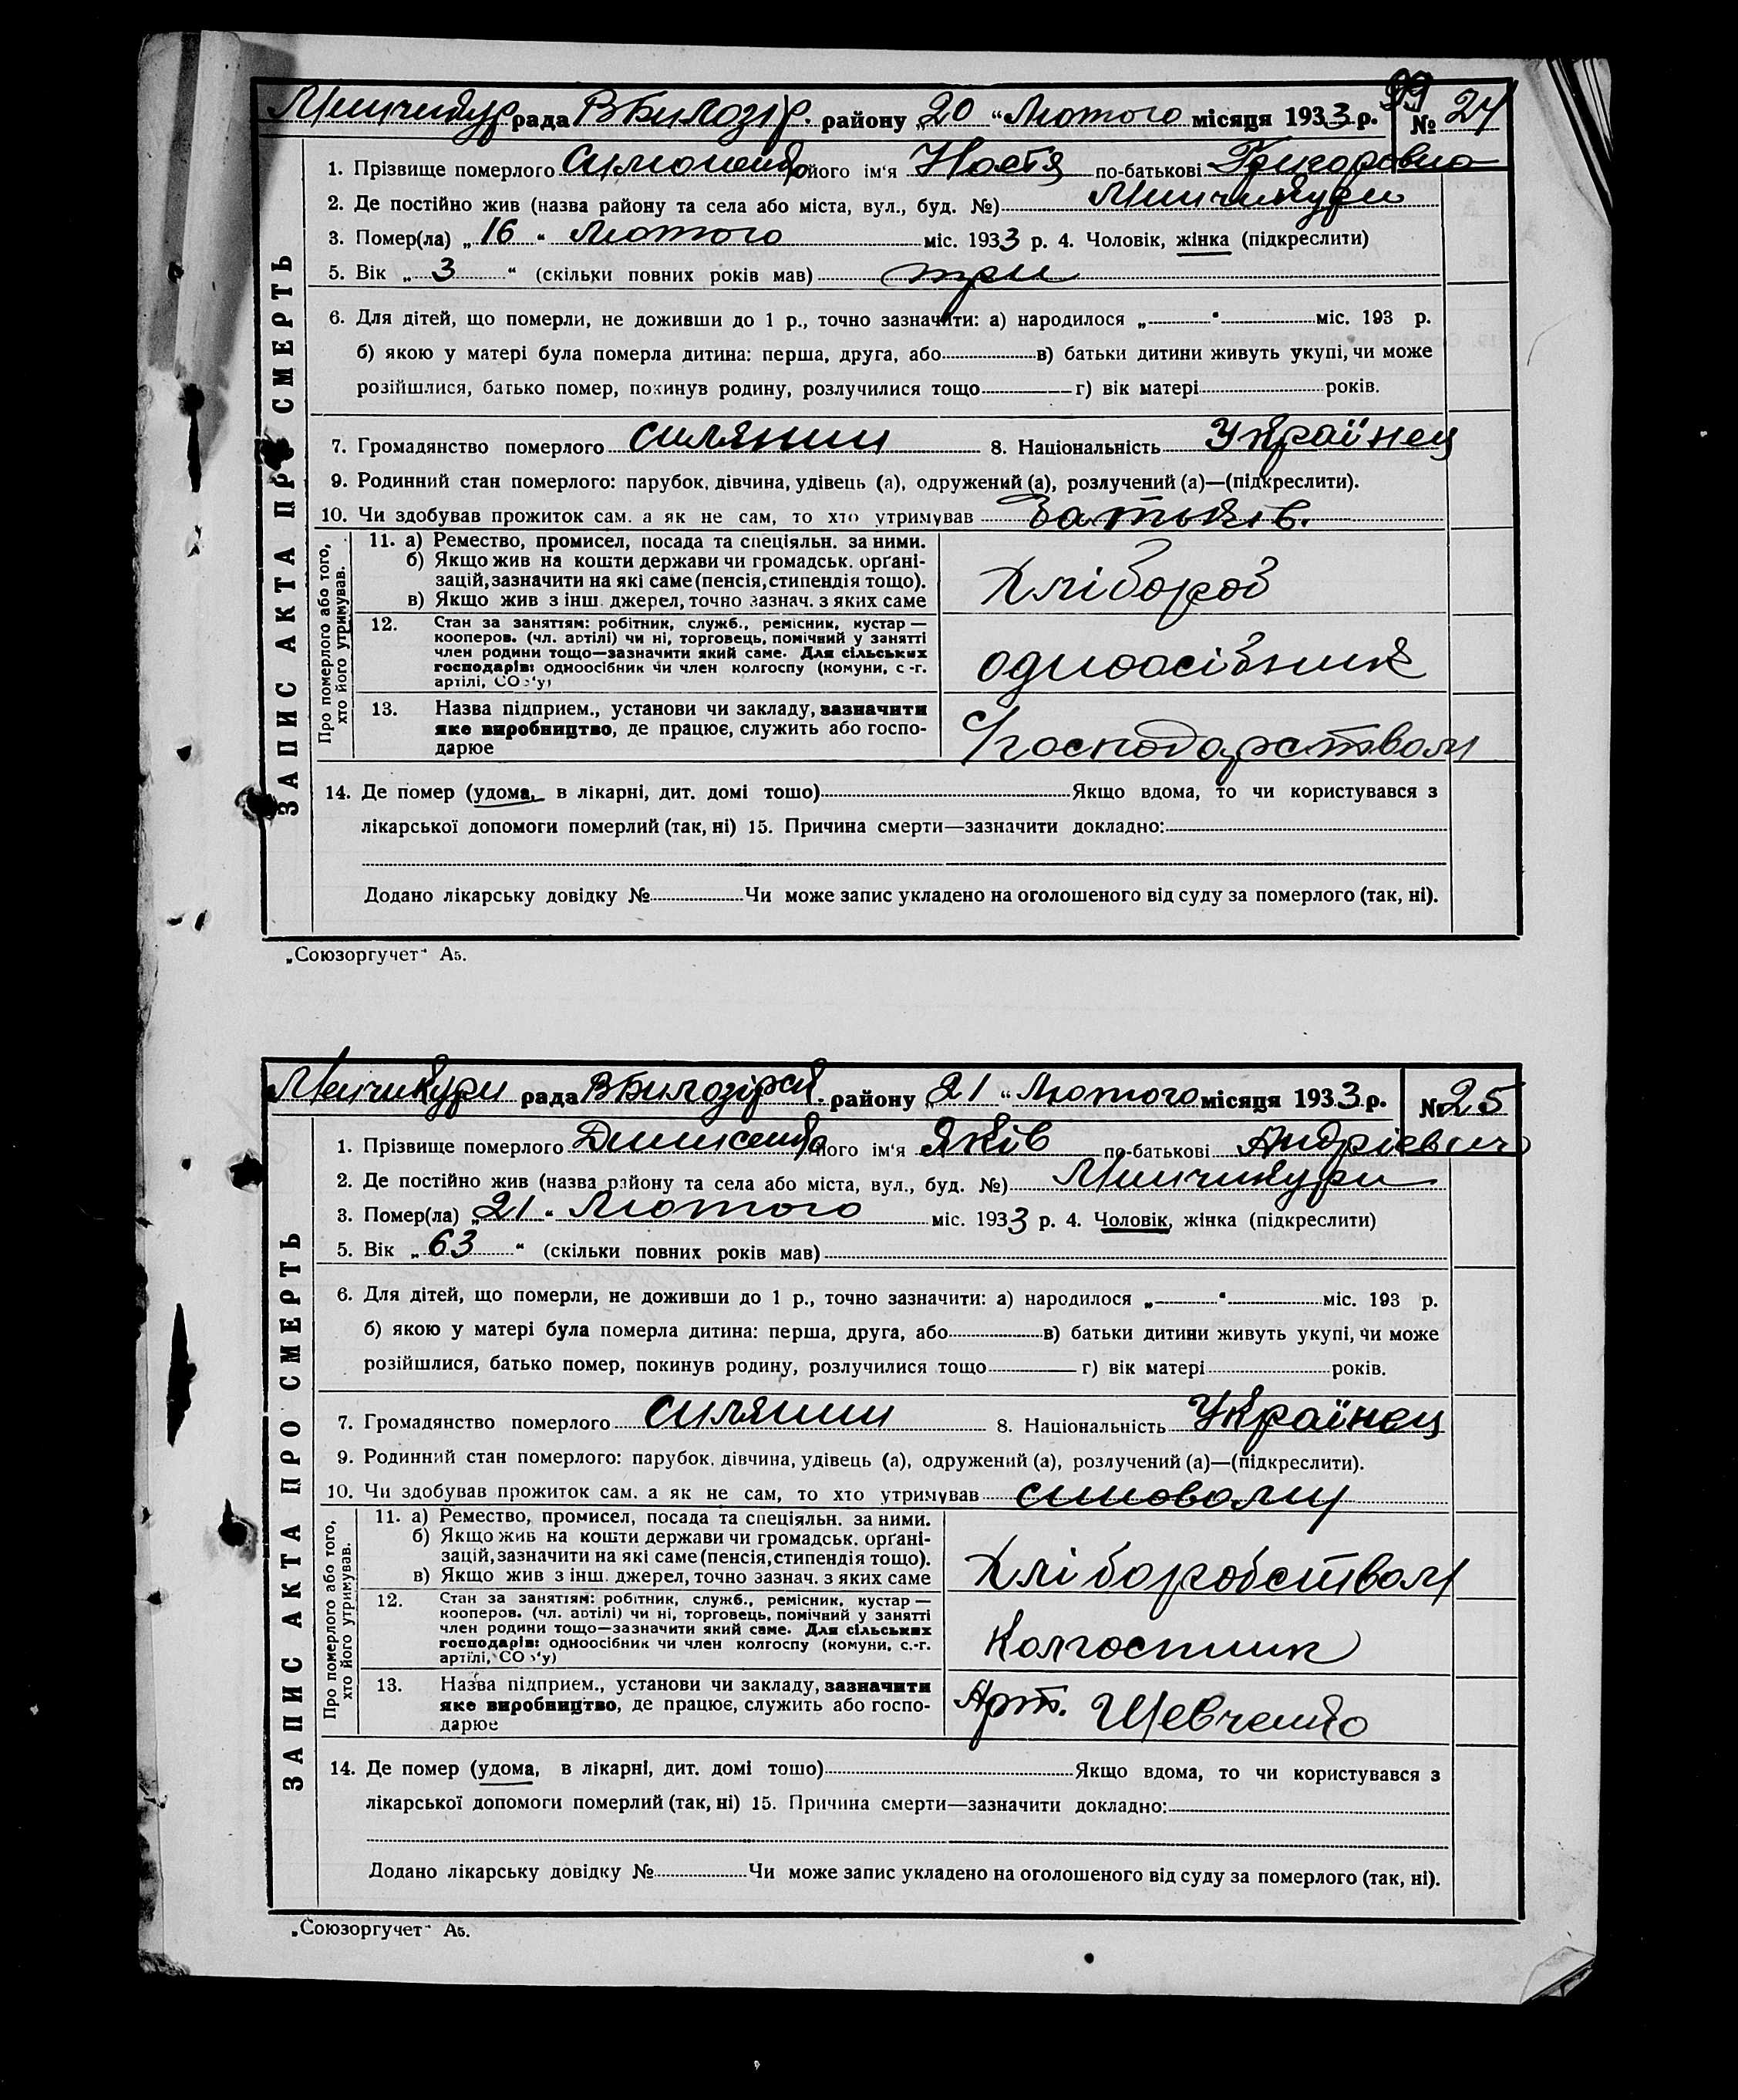 99
Минчикур рада В Білозір. району „20“ Лютого місяця 1933 р. № 24
1. Прізвище померлого Симоненко його ім‘я Настя по-батькові Григоровна
2. Де постійно жив (назва району та села або міста, вул., буд. №) Минчикури
3. Помер(ла) „16“ Лютого міс. 1933 р. 4. Чоловік, жінка (підкреслити)
5. Вік „3“ (скільки повних років мав) три
6. Для дітей, що померли, не доживши до 1 р., точно зазначити: а) народилося „ “ міс. 193 р.
б) якою у матері була померла дитина: перша, друга, або в) батьки дитини живуть укупі, чи може
розійшлися, батько помер, покинув родину, розлучилися тощо г) вік матері років.
7. Громадянство померлого силянин 8. Національність Українец
9. Родинний стан померлого: парубок, дівчина, удівець (а), одружений (а), розлучений (а)—(підкреслити).
10. Чи здобував прожиток сам. а як не сам, то хто утримував Батьків.
ЗАПИС АКТА ПРО СМЕРТЬ
Про померлого або того, хто його утримував.
11. а) Ремество, промисел, посада та спеціяльн. за ними.
б) Якщо жив на кошти держави чи громадськ. орґані-
зацій, зазначити на які саме (пенсія, стипендія тощо).
в) Якщо жив з інш. джерел, точно зазнач. з яких саме
Хлібороб
12. Стан за заняттям: робітник, служб., ремісник, кустар —
кооперов. (чл. артілі) чи ні, торговець, помічний у занятті
член родини тощо—зазначити який саме. Для сільських
господарів: одноосібник чи член колгоспу (комуни, с.-г.
артілі, СОЗ‘у)
одноосібник
13. Назва підприєм., установи чи закладу, зазначити
яке виробництво, де працює, служить або госпо-
дарює
С/господарством
14. Де помер (удома, в лікарні, дит. домі тощо) Якщо вдома, то чи користувався з
лікарської допомоги померлий (так, ні) 15. Причина смерти—зазначити докладно:
Додано лікарську довідку № Чи може запис укладено на оголошеного від суду за померлого (так, ні).
„Союзоргучет“ А5.
Минчикури рада В Білозірсй. району „21“ Лютого місяця 1933 р. № 25
1. Прізвище померлого його ім‘я Яків по-батькові Андрієвич
2. Де постійно жив (назва району та села або міста, вул., буд. №) Минчикури
3. Помер(ла) „21“ Лютого міс. 1933 р. 4. Чоловік, жінка (підкреслити)
5. Вік „63“ (скільки повних років мав)
6. Для дітей, що померли, не доживши до 1 р., точно зазначити: а) народилося „ “ міс. 193 р.
б) якою у матері була померла дитина: перша, друга, або в) батьки дитини живуть укупі, чи може
розійшлися, батько помер, покинув родину, розлучилися тощо г) вік матері років.
7. Громадянство померлого силянин 8. Національність Українец
9. Родинний стан померлого: парубок, дівчина, удівець (а), одружений (а), розлучений (а)—(підкреслити).
10. Чи здобував прожиток сам. а як не сам, то хто утримував синовому
ЗАПИС АКТА ПРО СМЕРТЬ
Про померлого або того, хто його утримував.
11. а) Ремество, промисел, посада та спеціяльн. за ними.
б) Якщо жив на кошти держави чи громадськ. орґані-
зацій, зазначити на які саме (пенсія, стипендія тощо).
в) Якщо жив з інш. джерел, точно зазнач. з яких саме
Хліборобством
12. Стан за заняттям: робітник, служб., ремісник, кустар —
кооперов. (чл. артілі) чи ні, торговець, помічний у занятті
член родини тощо—зазначити який саме. Для сільських
господарів: одноосібник чи член колгоспу (комуни, с.-г.
артілі, СОЗ‘у)
Колгоспник
13. Назва підприєм., установи чи закладу, зазначити
яке виробництво, де працює, служить або госпо-
дарює
Арт. Шевченко
14. Де помер (удома, в лікарні, дит. домі тощо) Якщо вдома, то чи користувався з
лікарської допомоги померлий (так, ні) 15. Причина смерти—зазначити докладно:
Додано лікарську довідку № Чи може запис укладено на оголошеного від суду за померлого (так, ні).
„Союзоргучет“ А5.